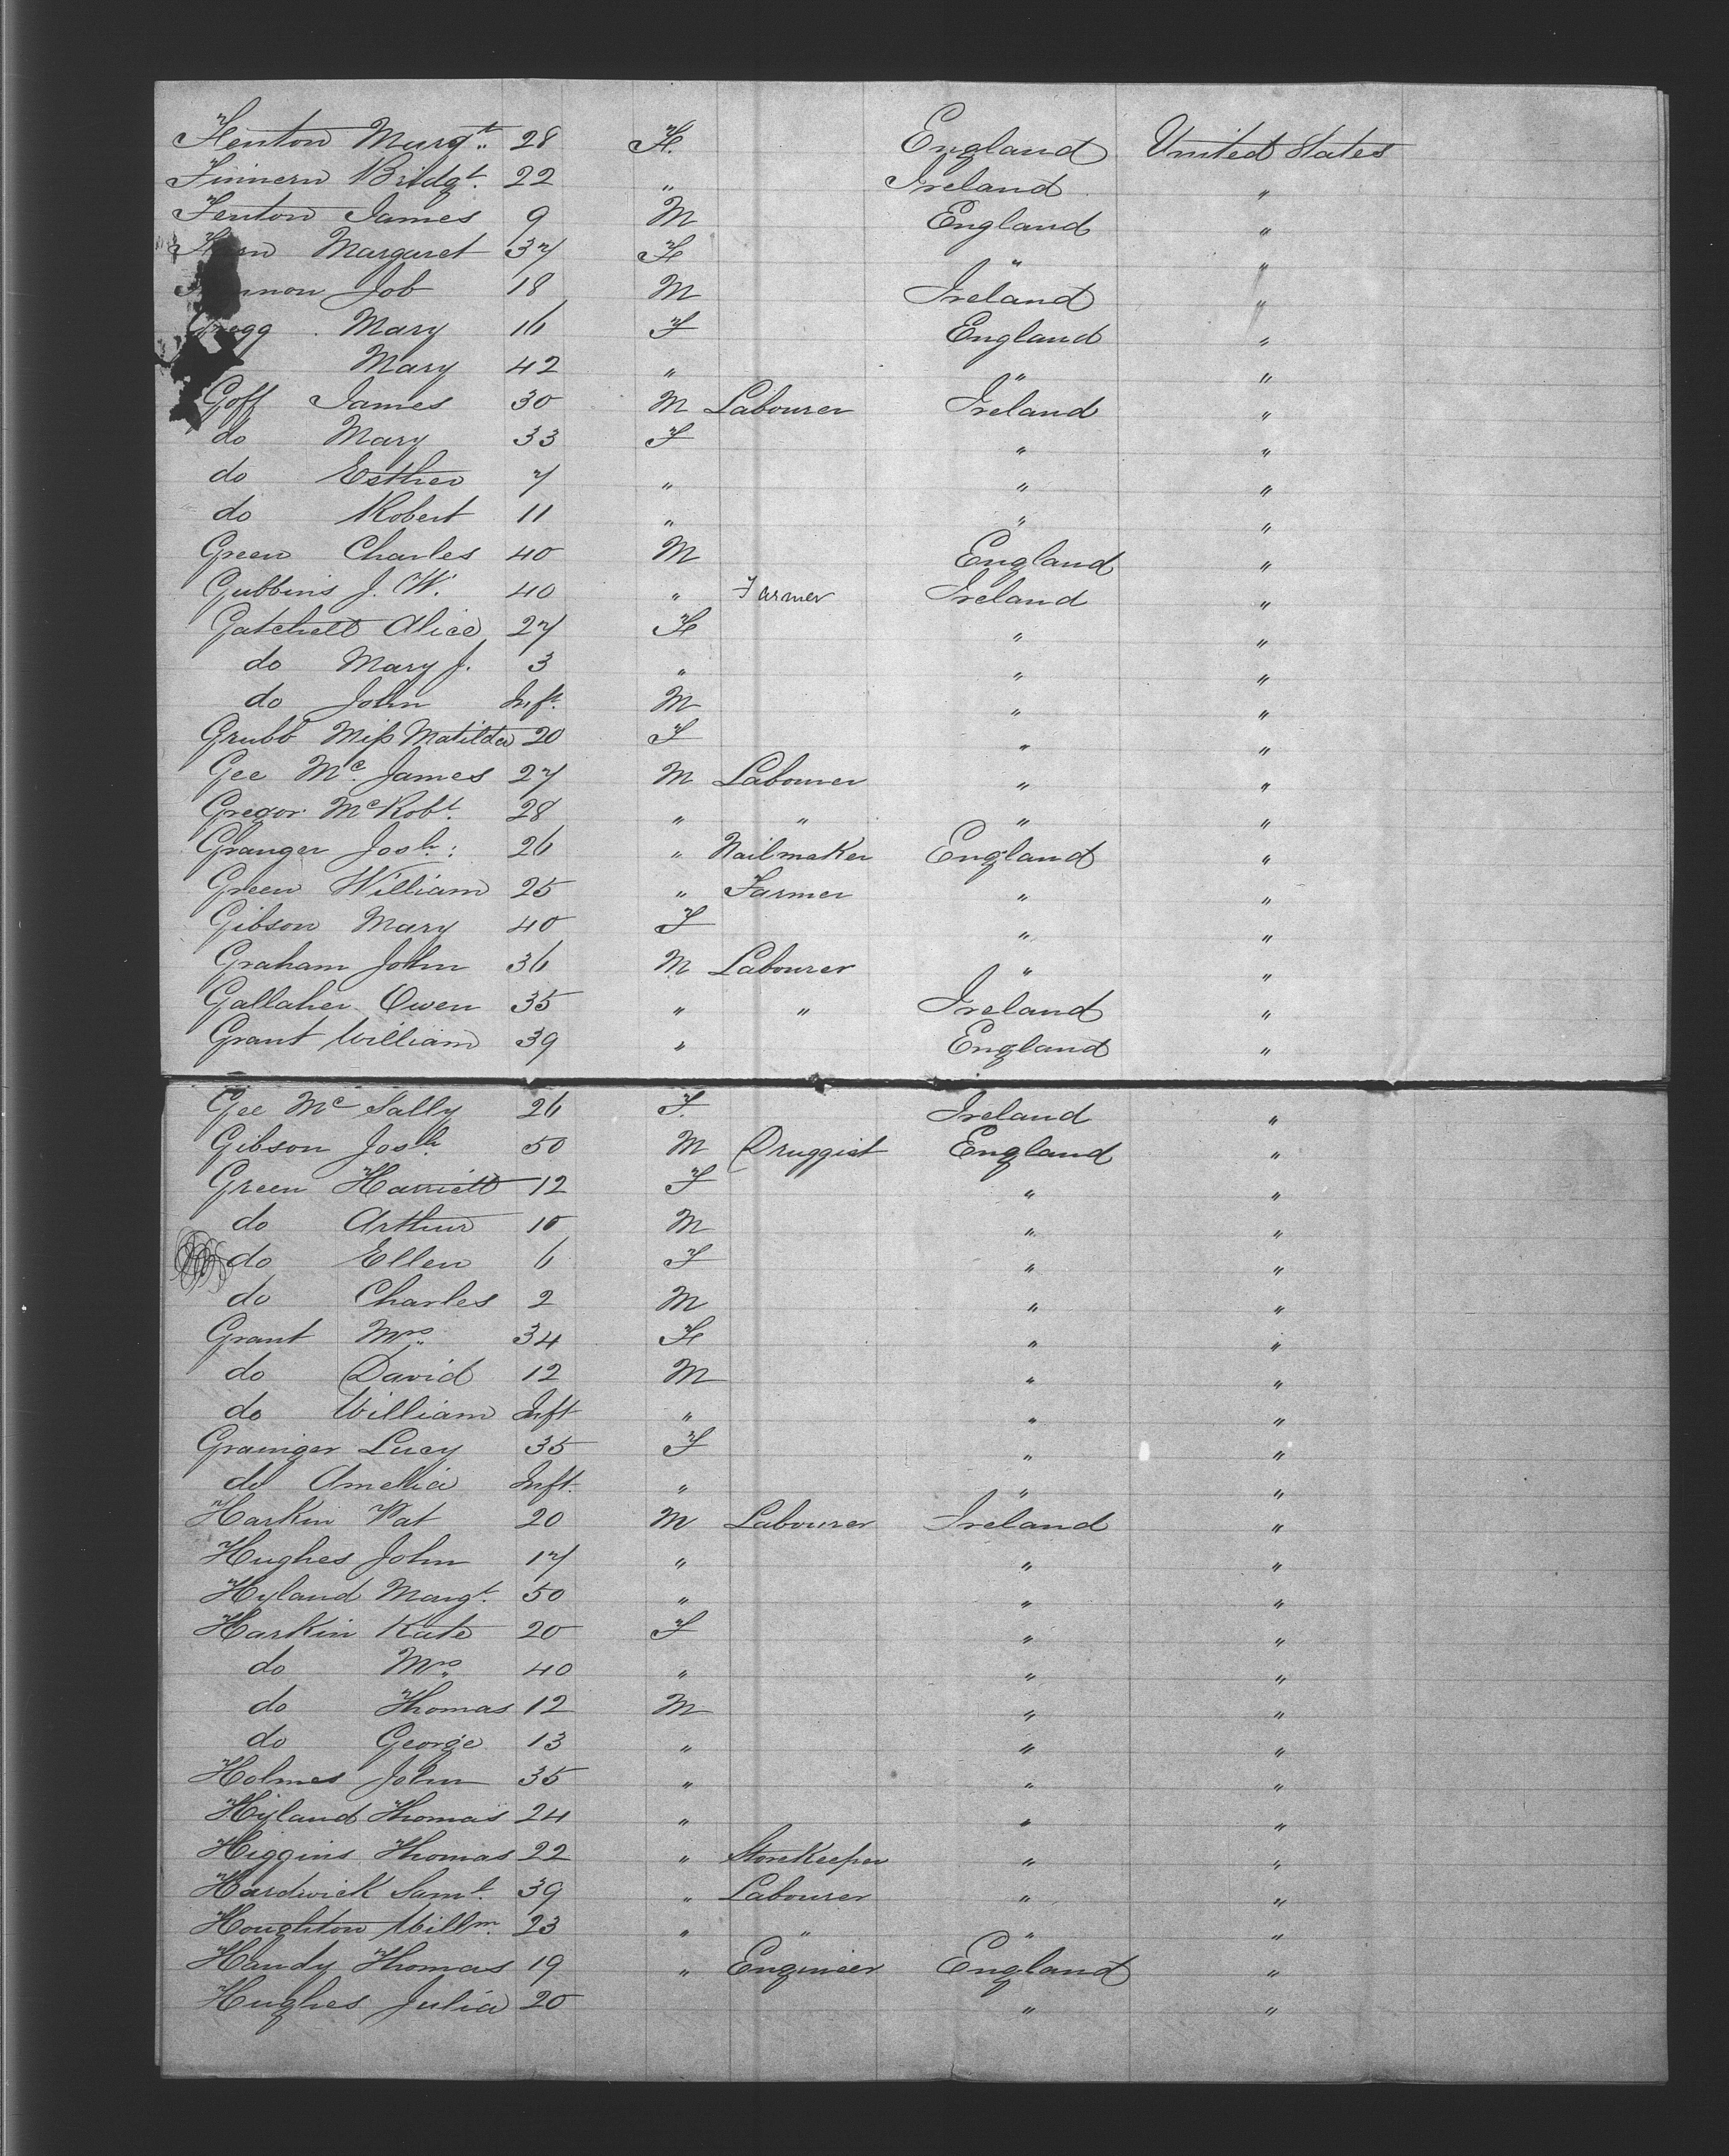 Fenton Margt. 28 F. England United States
Finnern Bridgt. 22 " Ireland "
Fenton James 9 M England "
Margaret 37 F " "
Job 18 M Ireland "
Gregg Mary 16 F England "
Mary 42 " " "
Goff James 30 M Labourer Ireland "
do Mary 33 F " "
do Esther 7 " " "
do Robert 11 " " "
Green Charles 40 M England "
Gubbins J. W. 40 " Farmer Ireland "
Gatchell Alice 27 F " "
do Mary J. 3 " " "
do John Inft. M " "
Grubb Miss Matilda 20 F " "
Gee Mc. James 27 M Labourer " "
Gregor Mc Robt. 28 " " " "
Granger Josh: 26 " Nailmaker England "
Green William 25 " Farmer " "
Gibson Mary 40 F " "
Graham John 36 M Labourer " "
Gallaher Owen 35 " " Ireland "
Grant William 39 " England "
Gee Mc Sally 26 F. Ireland "
Gibson Josh. 50 M Druggist England "
Green Harriett 12 F " "
do Arthur 10 M " "
do Ellen 6 F " "
do Charles 2 M " "
Grant Mrs. 34 F " "
do David 12 M " "
do William Inft " " "
Grainger Lucy 35 F " "
do Amelia Inft. " " "
Harkin Pat 20 M Labourer Ireland "
Hughes John 17 " " "
Hyland Margt. 50 " " "
Harkin Kate 20 F " "
do Mrs. 40 " " "
do Thomas 12 M " "
do George 13 " " "
Holmes John 35 " " "
Hyland Thomas 24 " " "
Higgins Thomas 22 " Storekeeper " "
Hardwick Saml. 39 " Labourer " "
Houghton Willm. 23 " " " "
Handy Thomas 19 " Engineer England "
Hughes Julia 20 " "